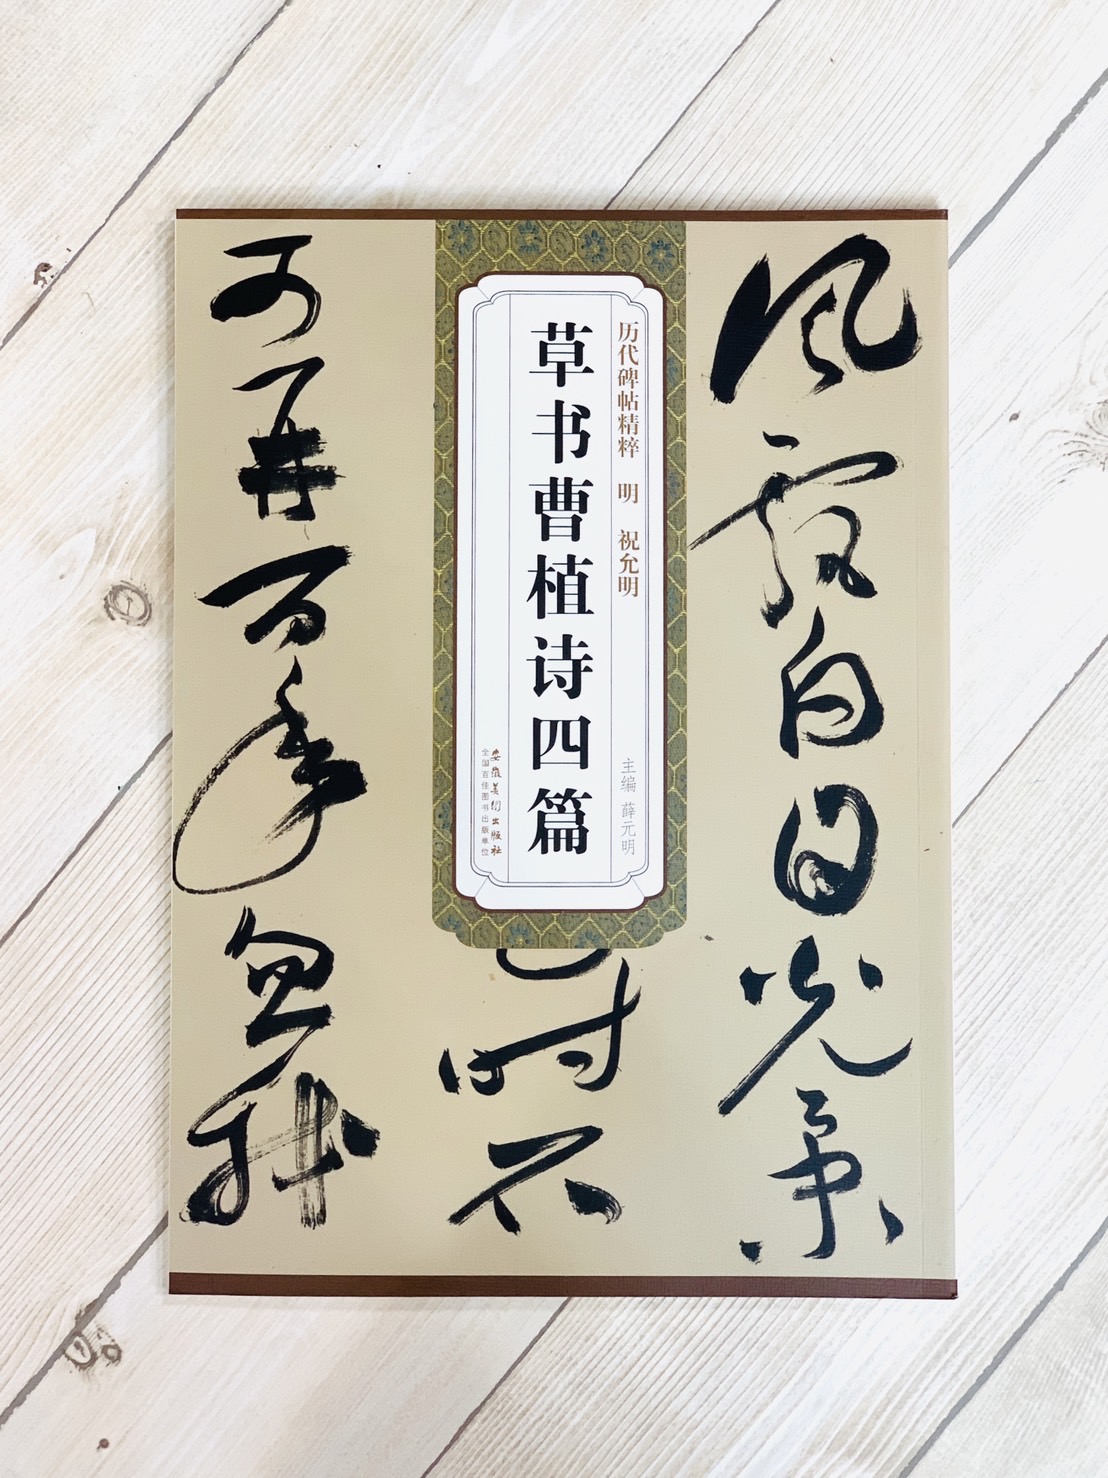 風飄白日光景
历代碑帖精粹 明 祝允明
主编 薛元明
草书曹植诗四篇
安徽美术出版社
全国百佳图书出版单位
時不
可再百年忽我